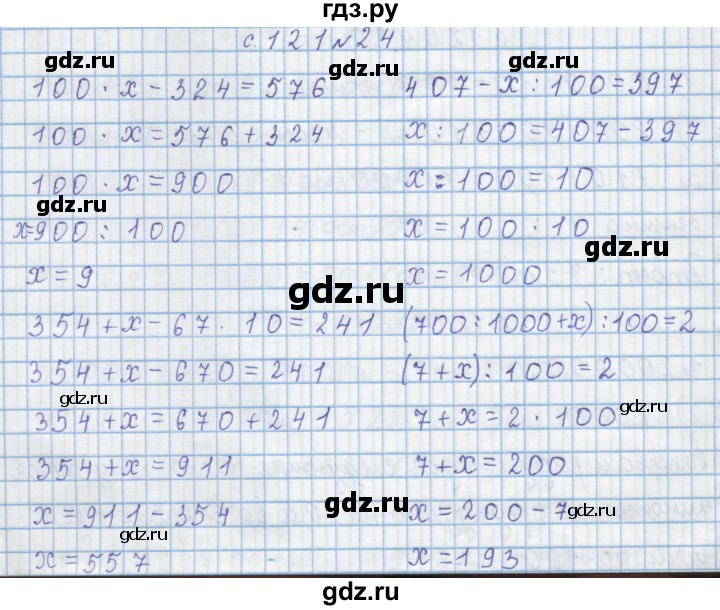 гдз.ру
с. 121 № 24.
100 · х - 324 = 576
100 · х = 576 + 324
100 · х = 900
х = 900 : 100
х = 9
407 - х : 100 = 397
х : 100 = 407 - 397
х : 100 = 10
х = 100 · 10
х = 1000
354 + х - 67 · 10 = 241
354 + х - 670 = 241
354 + х = 670 + 241
354 + х = 911
х = 911 - 354
х = 557
(700 : 1000 + х) : 100 = 2
(7 + х) : 100 = 2
7 + х = 2 · 100
7 + х = 200
х = 200 - 7
х = 193
gdz.ru
gdz.ru
gdz.ru
gdz.ru
gdz.ru
gdz.ru
gdz.ru
gdz.ru
gdz.ru
gdz.ru
gdz.ru
gdz.ru
gdz.ru